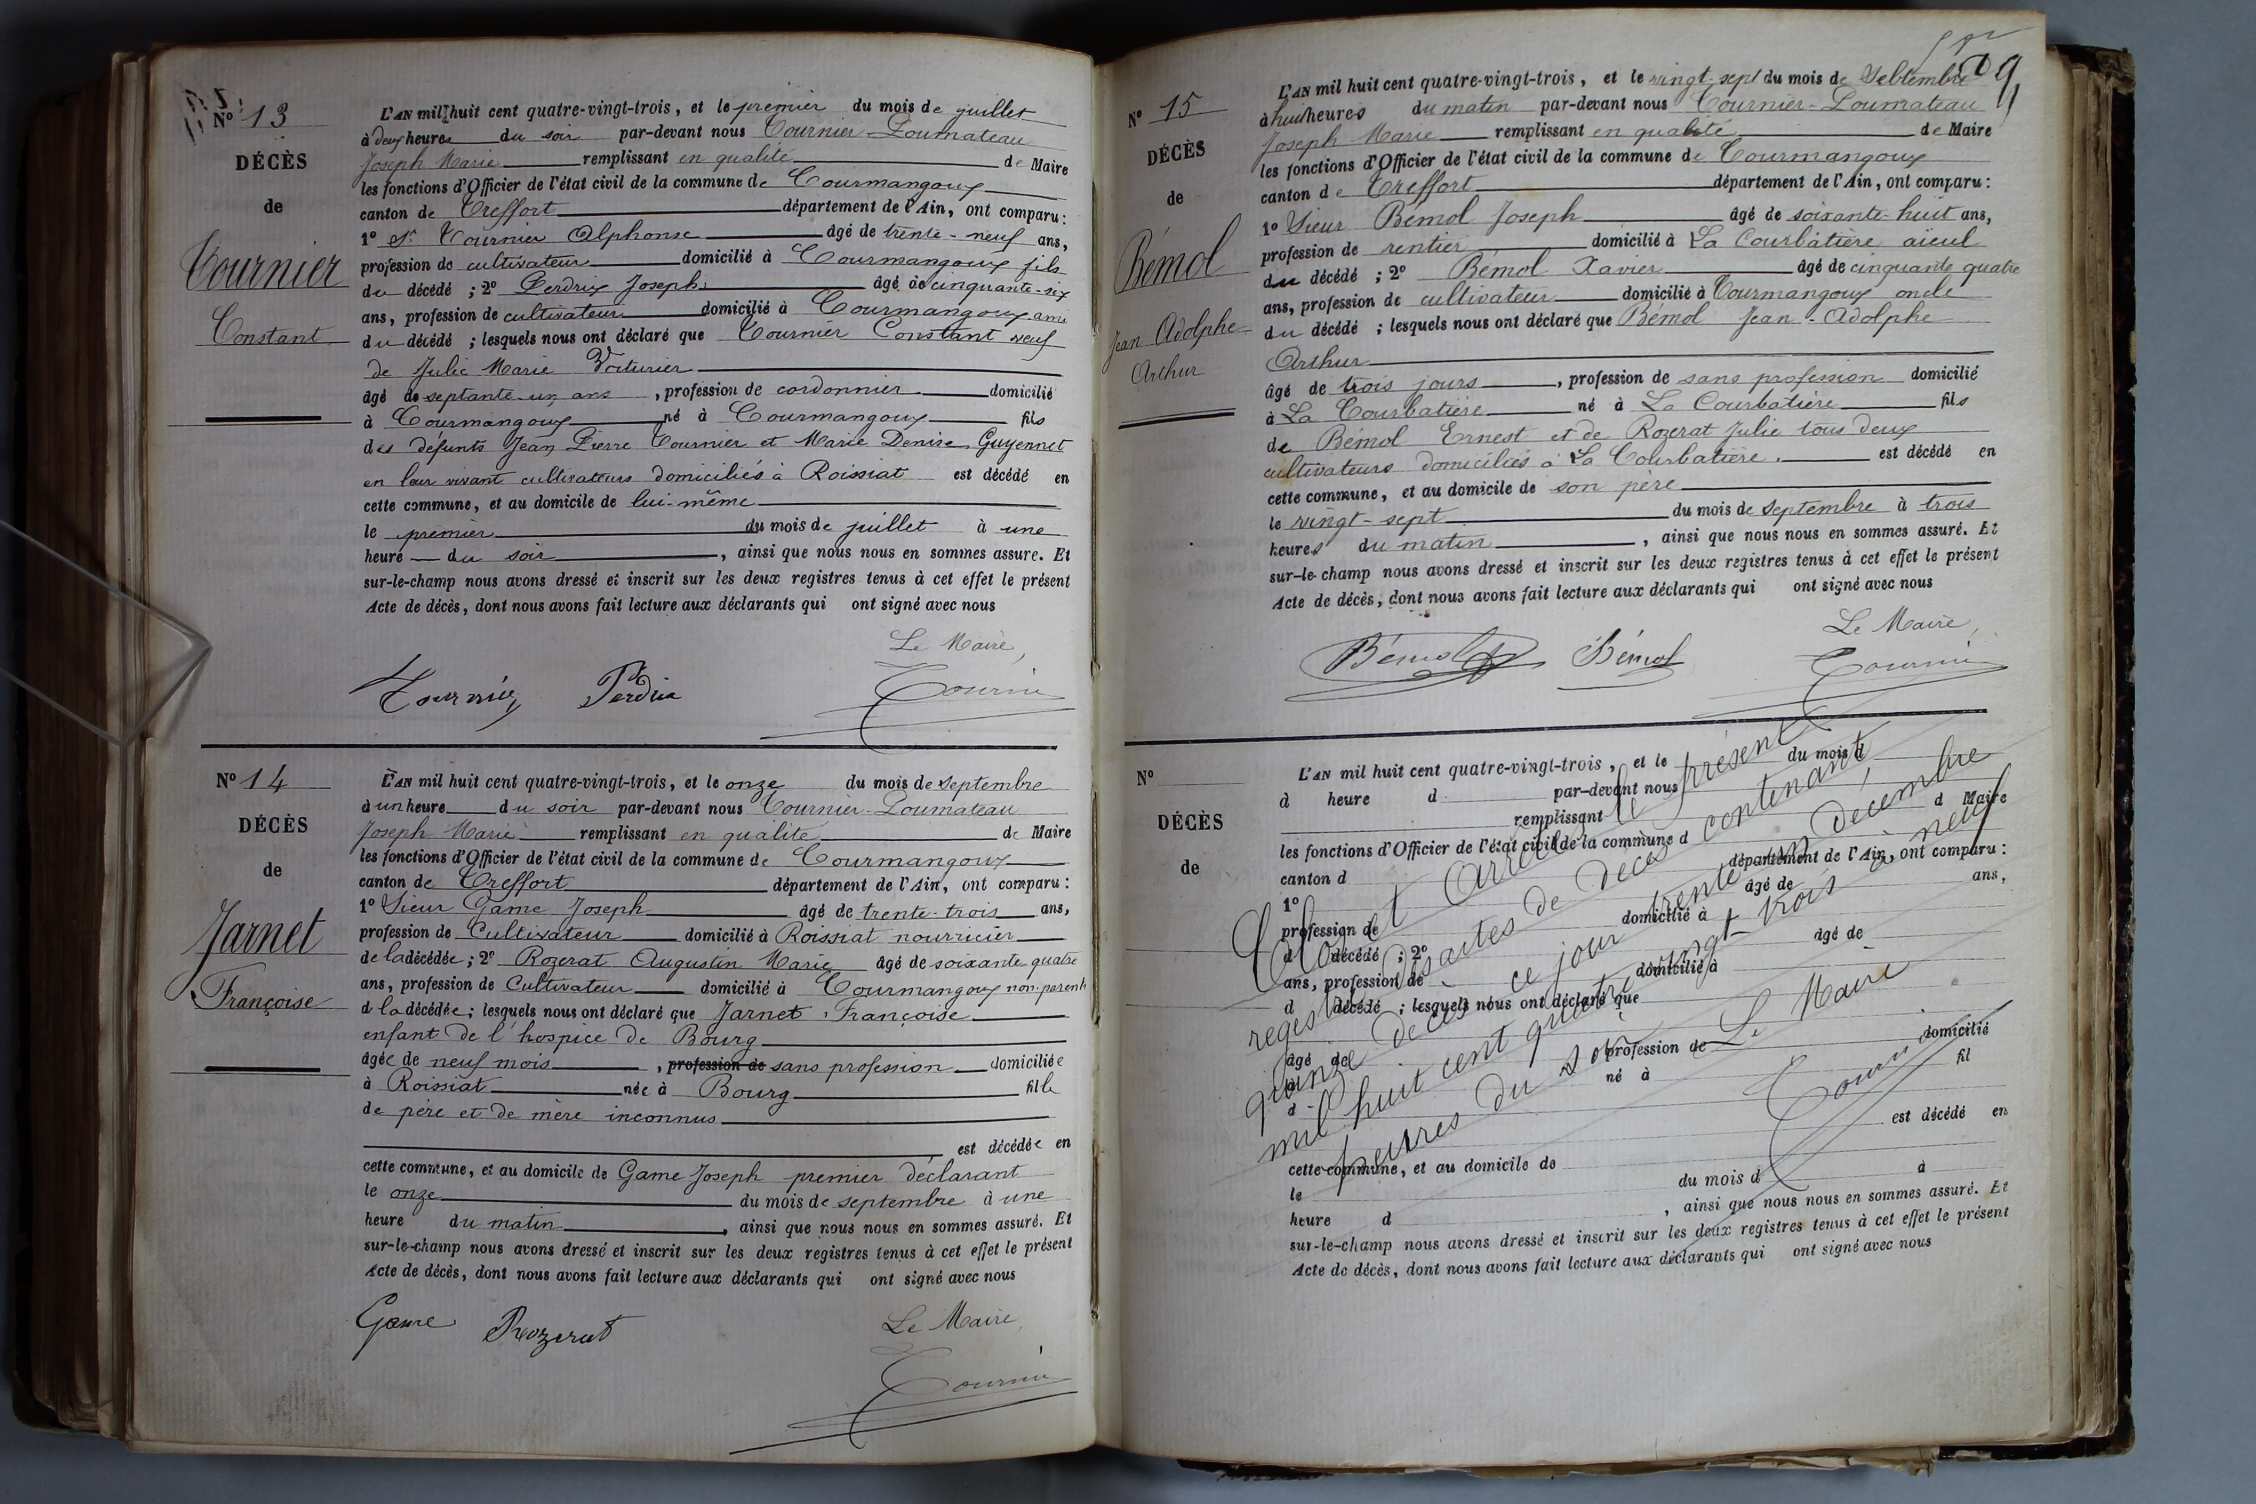 Nº 13
DÉCÈS
de
Tournier
Constant
L'AN mil huit cent quatre-vingt-trois, et le premier du mois de juillet
à deux heures du soir par-devant nous Tournier-Poumateau
Joseph Marie remplissant en qualité de Maire
les fonctions d'Officier de l'état civil de la commune de Courmangoux
canton de Treffort département de l'Ain, ont comparu:
1º Sr. Tournier Alphonse âgé de trente-neuf ans,
profession de cultivateur domicilié à Courmangoux fils
du décédé ; 2º Perdrix Joseph âgé de cinquante-six
ans, profession de cultivateur domicilié à Courmangoux ami
du décédé ; lesquels nous ont déclaré que Tournier Constant veuf
de Julie Marie Voiturier
âgé de septante-un ans, profession de cordonnier domicilié
à Courmangoux né à Courmangoux fils
des défunts Jean Pierre Tournier et Marie Denise Guyennet
en leur vivant cultivateurs domiciliés à Roissiat est décédé en
cette commune, et au domicile de lui-même
le premier du mois de juillet à une
heure du soir, ainsi que nous nous en sommes assuré. Et
sur-le-champ nous avons dressé et inscrit sur les deux registres tenus à cet effet le présent
Acte de décès, dont nous avons fait lecture aux déclarants qui ont signé avec nous
Le Maire,
Tournier Perdrix Tournier
Nº 14
DÉCÈS
de
Jarnet
Françoise
L'AN mil huit cent quatre-vingt-trois, et le onze du mois de septembre
à un heure du soir par-devant nous Tournier-Poumateau
Joseph Marie remplissant en qualité de Maire
les fonctions d'Officier de l'état civil de la commune de Courmangoux
canton de Treffort département de l'Ain, ont comparu:
1º Sieur Game Joseph âgé de trente-trois ans,
profession de Cultivateur domicilié à Roissiat nourricier
de la décédée ; 2º Rozerat Augustin Marie âgé de soixante quatre
ans, profession de Cultivateur domicilié à Courmangoux non parent
d la décédée ; lesquels nous ont déclaré que Jarnet Françoise
enfant de l'hospice de Bourg
âgée de neuf mois, profession de sans profession domiciliée
à Roissiat née à Bourg fille
de père et de mère inconnus
est décédée en
cette commune, et au domicile de Game Joseph premier déclarant
le onze du mois de septembre à une
heure du matin, ainsi que nous nous en sommes assuré. Et
sur-le-champ nous avons dressé et inscrit sur les deux registres tenus à cet effet le présent
Acte de décès, dont nous avons fait lecture aux déclarants qui ont signé avec nous
Le Maire,
Game Rozerat
Tournier
Nº 15
DÉCÈS
de
Bémol
Jean Adolphe
Arthur
L'AN mil huit cent quatre-vingt-trois, et le vingt-sept du mois de Septembre
à huit heures du matin par-devant nous Tournier-Poumateau
Joseph Marie remplissant en qualité de Maire
les fonctions d'Officier de l'état civil de la commune de Courmangoux
canton de Treffort département de l'Ain, ont comparu:
1º Sieur Bémol Joseph âgé de soixante-huit ans,
profession de rentier domicilié à La Courbatière aieul
du décédé ; 2º Bémol Xavier âgé de cinquante quatre
ans, profession de cultivateur domicilié à Courmangoux oncle
du décédé ; lesquels nous ont déclaré que Bémol Jean-Adolphe
Arthur
âgé de trois jours, profession de sans profession domicilié
à La Courbatière né à La Courbatière fils
de Bémol Ernest et de Rozerat Julie tous deux
cultivateurs domiciliés à La Courbatière. est décédé en
cette commune, et au domicile de son père
le vingt-sept du mois de septembre à trois
heures du matin, ainsi que nous nous en sommes assuré. Et
sur-le-champ nous avons dressé et inscrit sur les deux registres tenus à cet effet le présent
Acte de décès, dont nous avons fait lecture aux déclarants qui ont signé avec nous
Le Maire,
Bémol Bémol Tournier
Nº
DÉCÈS
de
L'AN mil huit cent quatre-vingt-trois, et le du mois d
à heure d par-devant nous
remplissant d Maire
les fonctions d'Officier de l'état civil de la commune d
canton d département de l'Ain, ont comparu:
1º âgé de ans,
profession de domicilié à
d décédé ; 2º âgé de
ans, profession de domicilié à
d décédé ; lesquels nous ont déclaré que
âgé de profession de domicilié
à né à fil
d
est décédé en
cette commune, et au domicile de
le du mois d à
heure d, ainsi que nous nous en sommes assuré. Et
sur-le-champ nous avons dressé et inscrit sur les deux registres tenus à cet effet le présent
Acte de décès, dont nous avons fait lecture aux déclarants qui ont signé avec nous
Clos et Arrêté le présent
registre des actes de décès contenant
quinze décès ce jour trente un décembre
mil huit cent quatre vingt-trois à neuf
heures du soir
Le Maire
Tournier